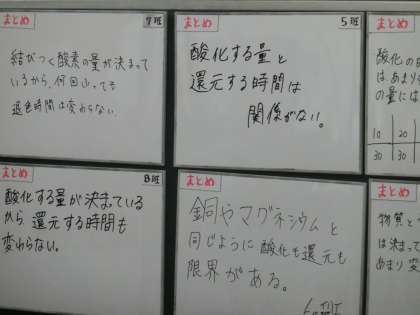 まとめ 7班
結びつく酸素の量が決まって
いるから、何回ふっても
退色時間は変わらない
まとめ 5班
酸化する量と
還元する時間は
関係がない。
酸化の
はあまり
の量には
10 20
30 30
まとめ 8班
酸化する量が決まっている
から 還元する時間も
変わらない。
まとめ
銅やマグネシウムと
同じように酸化も還元も
限界がある。
6班
まとめ
物質と
は決まって
あまり変